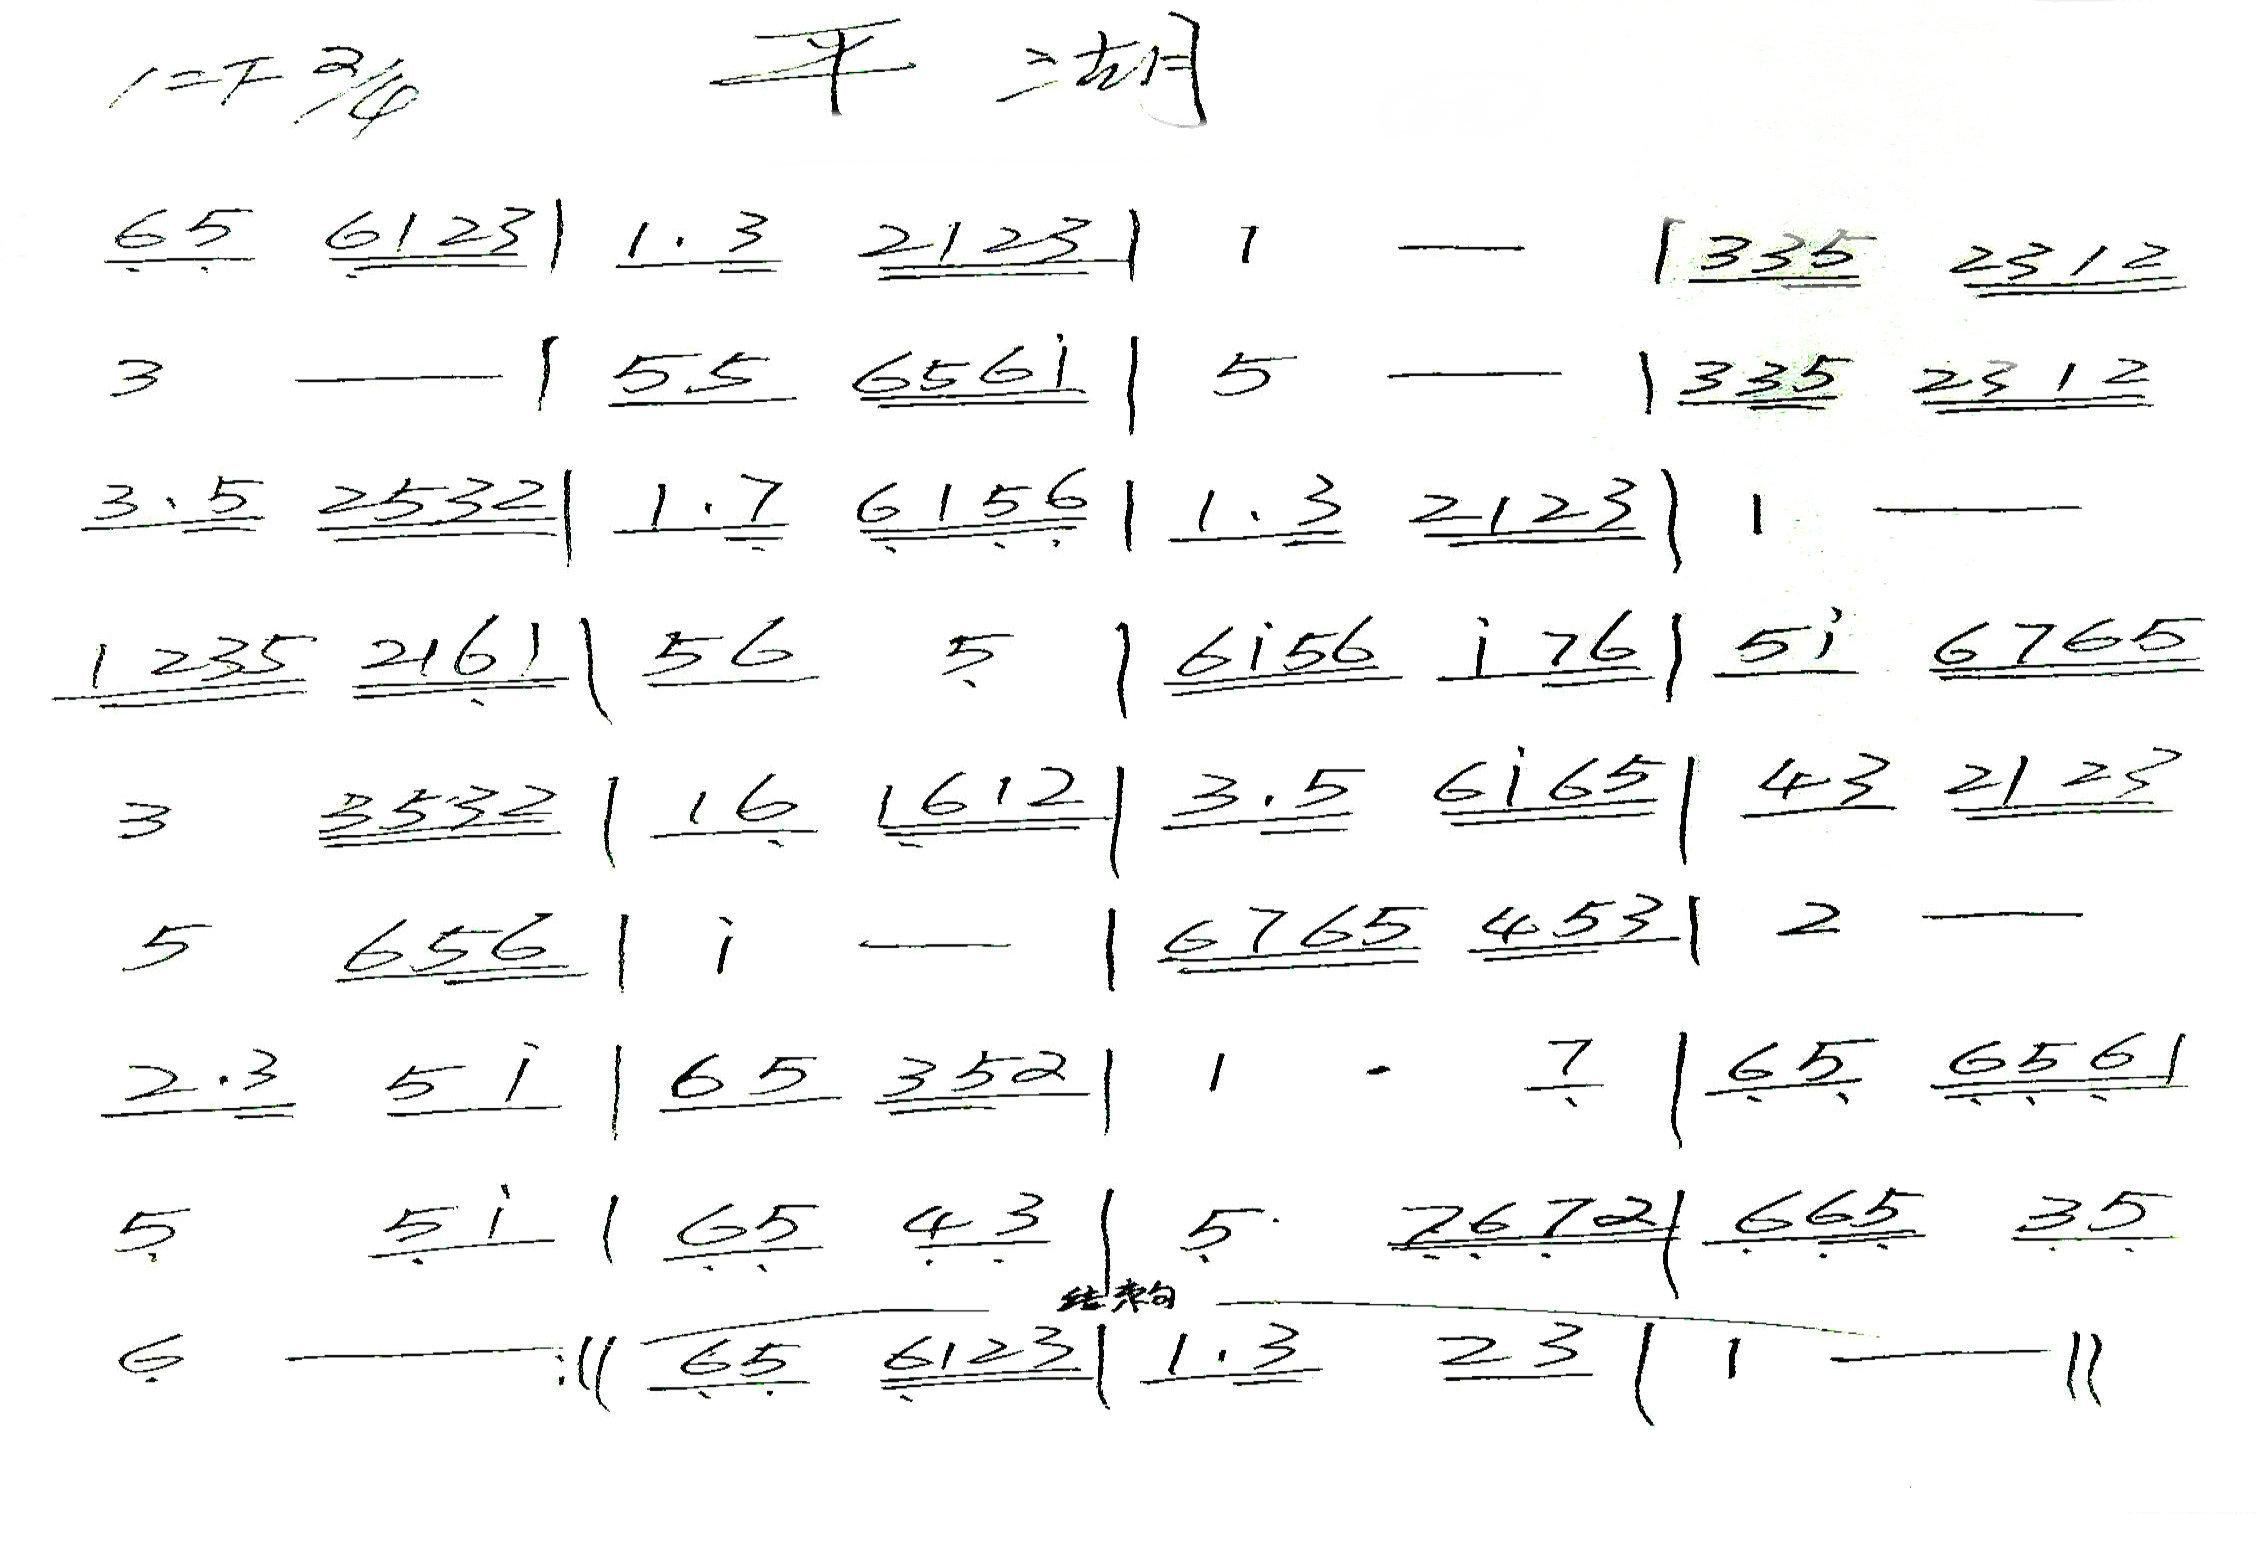 1=F 2/4 平湖
6̣5̣ 6̣123 | 1.3 2123 | 1 — | 335 2312
3 — | 55 656i | 5 — | 335 2312
3.5 2532 | 1.7̣ 6̣15̣6̣ | 1.3 2123 | 1 —
1235 216̣1 | 56 5̣ | 6i56 i76 | 5i 6765
3 3532 | 16̣ 16̣12 | 3.5 6i65 | 43 2123
5 656 | i — | 6765 453 | 2 —
2.3 5i | 65 352 | 1 · 7̣ | 6̣5̣ 6̣5̣6̣1
5̣ 5̣i | 6̣5̣ 4̣3̣ | 5̣· 7̣6̣7̣2 | 6̣6̣5̣ 3̣5̣
结束句
6̣ — :|| 6̣5̣ 6̣123 | 1.3 23 | 1 — ||